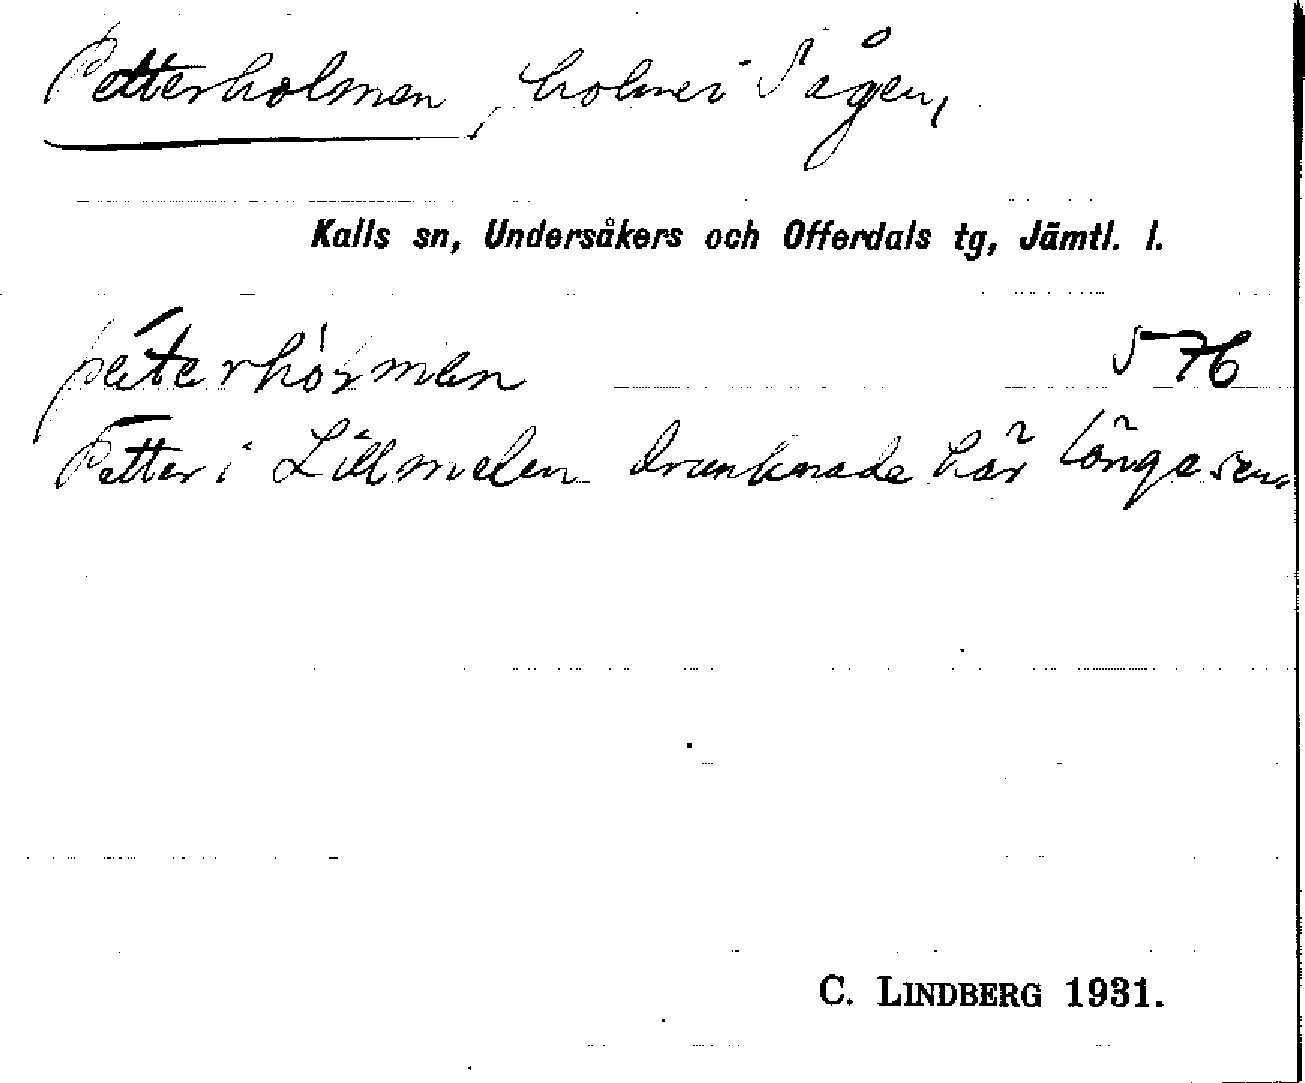 Petterholmen, holme i Sågen,
Kalls sn, Undersåkers och Offerdals tg, Jämtl. l.
576
Petter i Lillmelen drunknade här länge sen.
C. LINDBERG 1931.